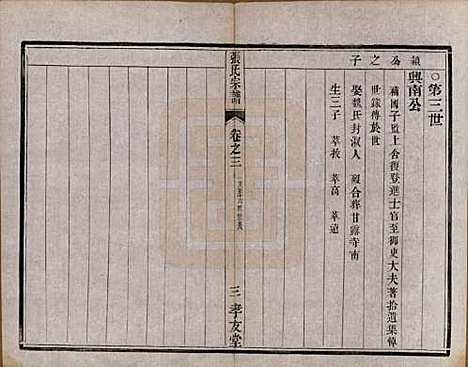 ○第三世
興南公
穎公之子
補國子監上舍復登進士官至御史大夫著拾遺集悼
世錄傳於世
娶魏氏封淑人 歿合葬甘露寺南
生三子 萃敉 萃高 萃遠
張氏宗譜
卷之三
三 孝友堂